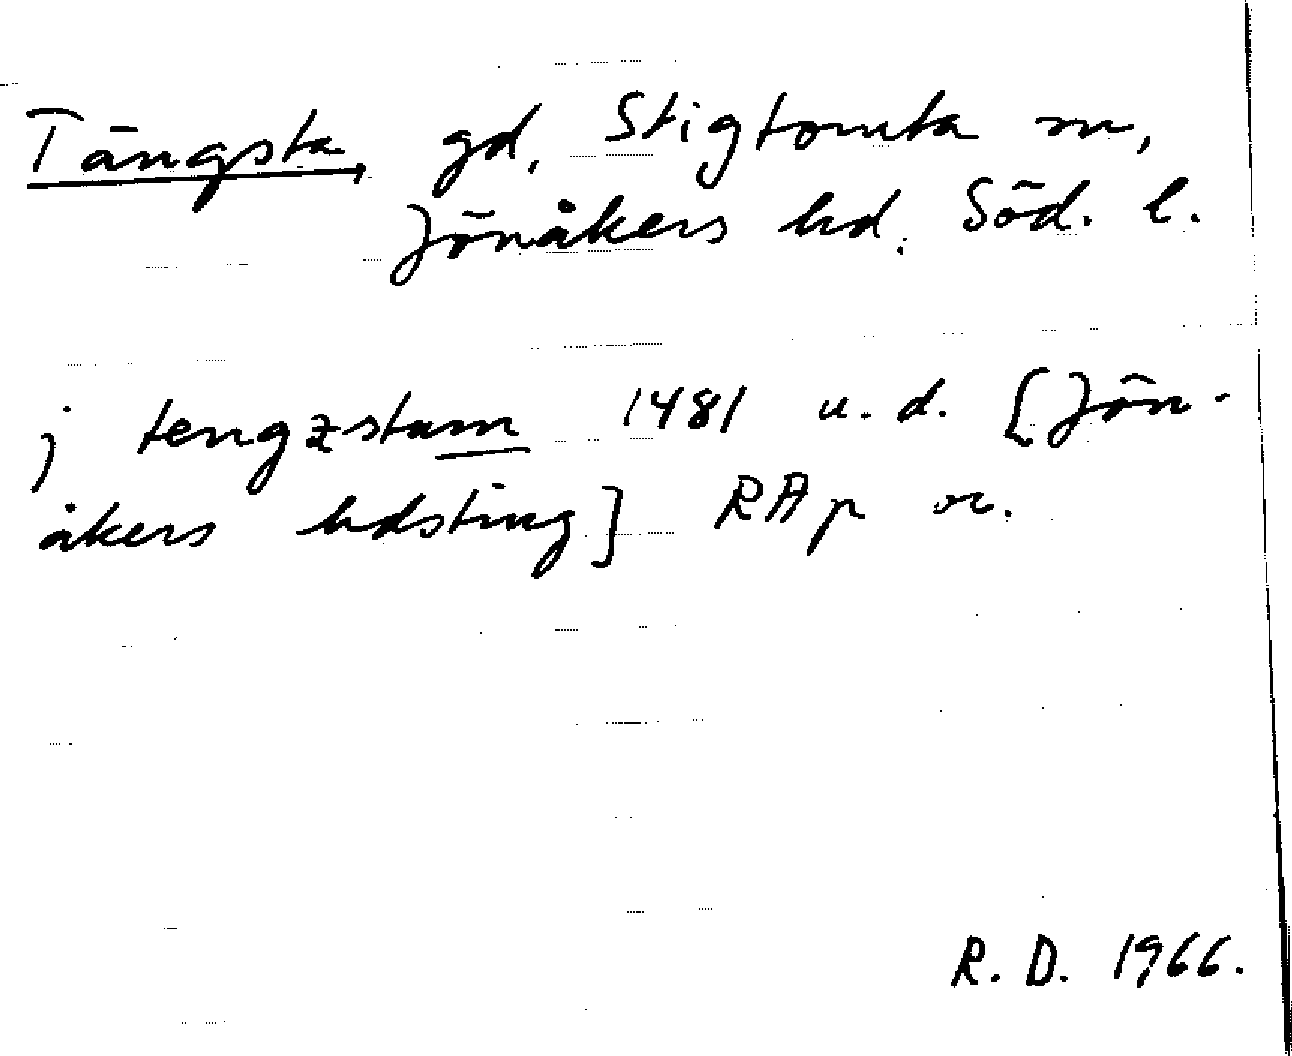 Tängsta, gd, Stigtomta sn,
Jönåkers hd. Söd. l.
j tengzstam 1481 u. d. [Jön-
åkers hdsting] RAp or.
R. D. 1966.